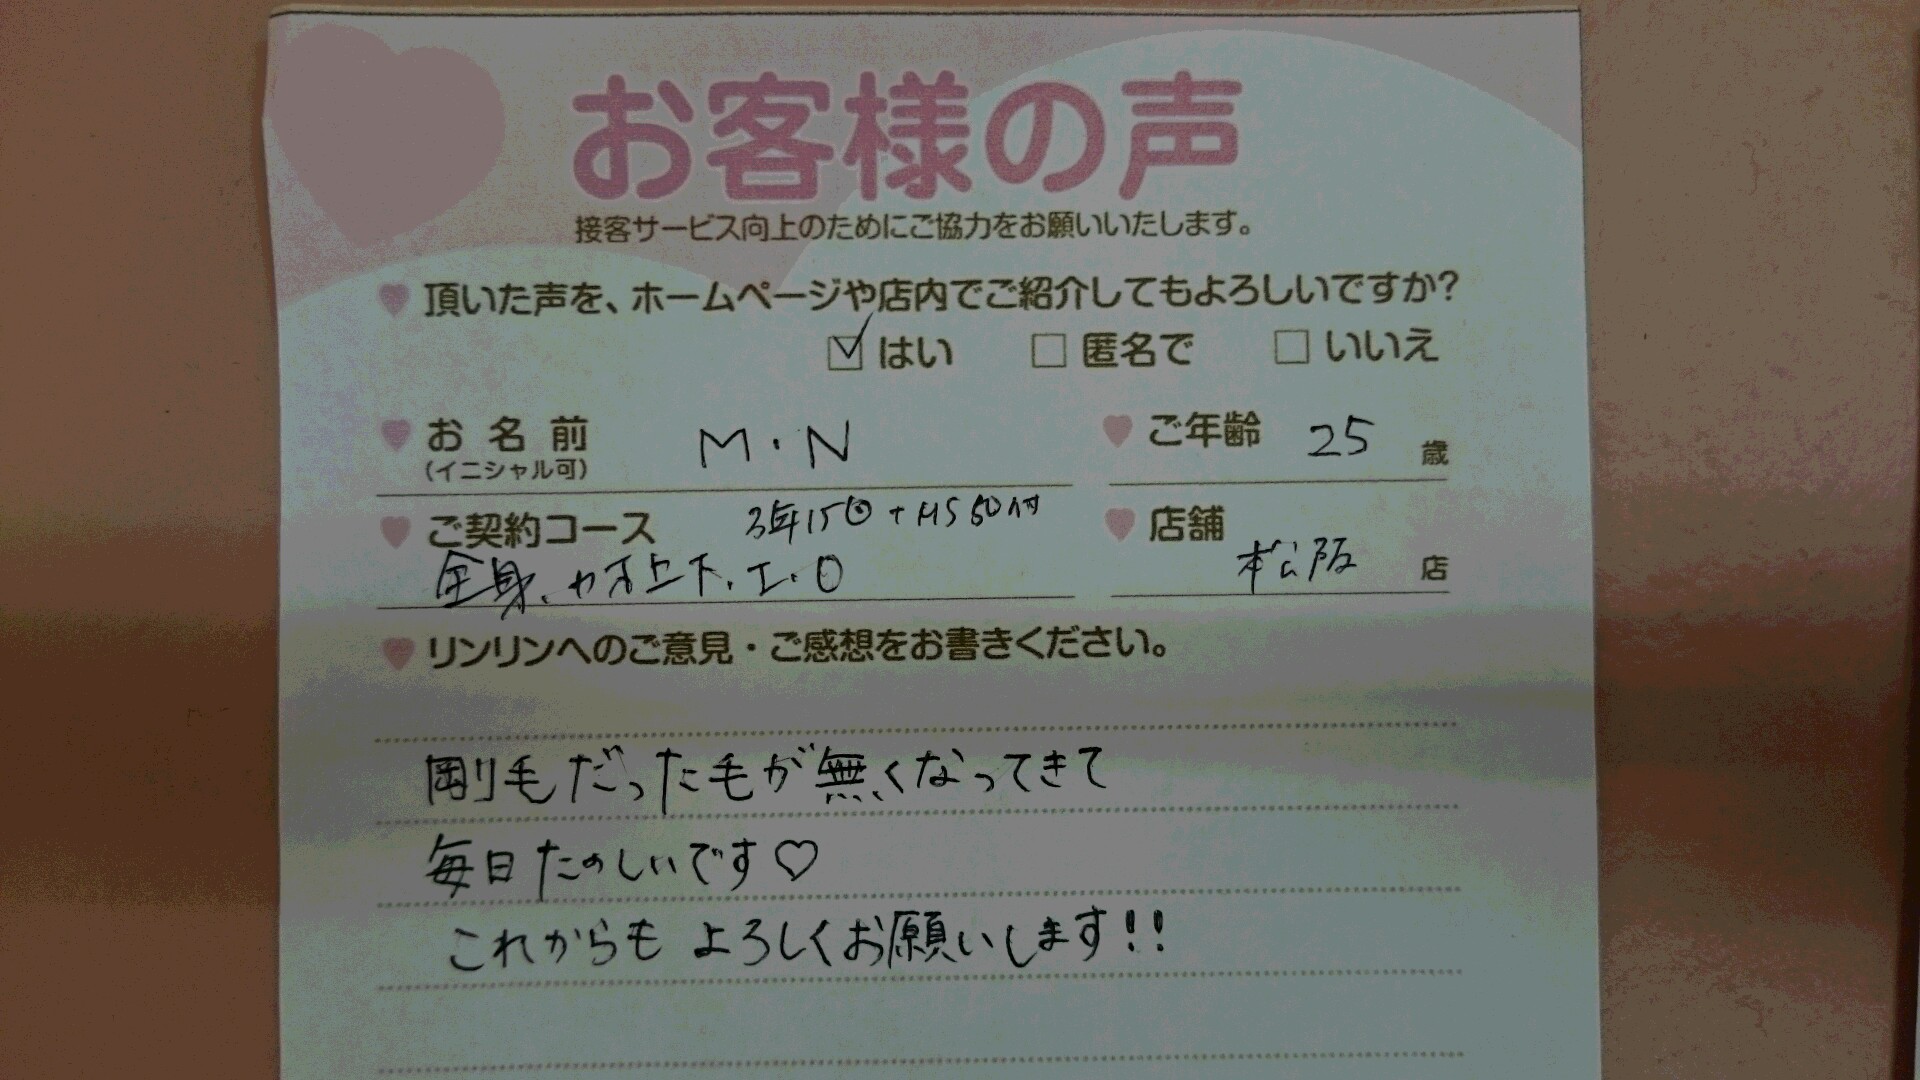 お客様の声
接客サービス向上のためにご協力をお願いいたします。
頂いた声を、ホームページや店内でご紹介してもよろしいですか?
はい 匿名で いいえ
お名前 M・N ご年齢 25 歳
(イニシャル可)
ご契約コース 3年15回+HS50付 店舗
全身、カオ上下、I・O 松阪 店
リンリンへのご意見・ご感想をお書きください。
剛毛だった毛が無くなってきて
毎日たのしいです♡
これからも よろしくお願いします!!